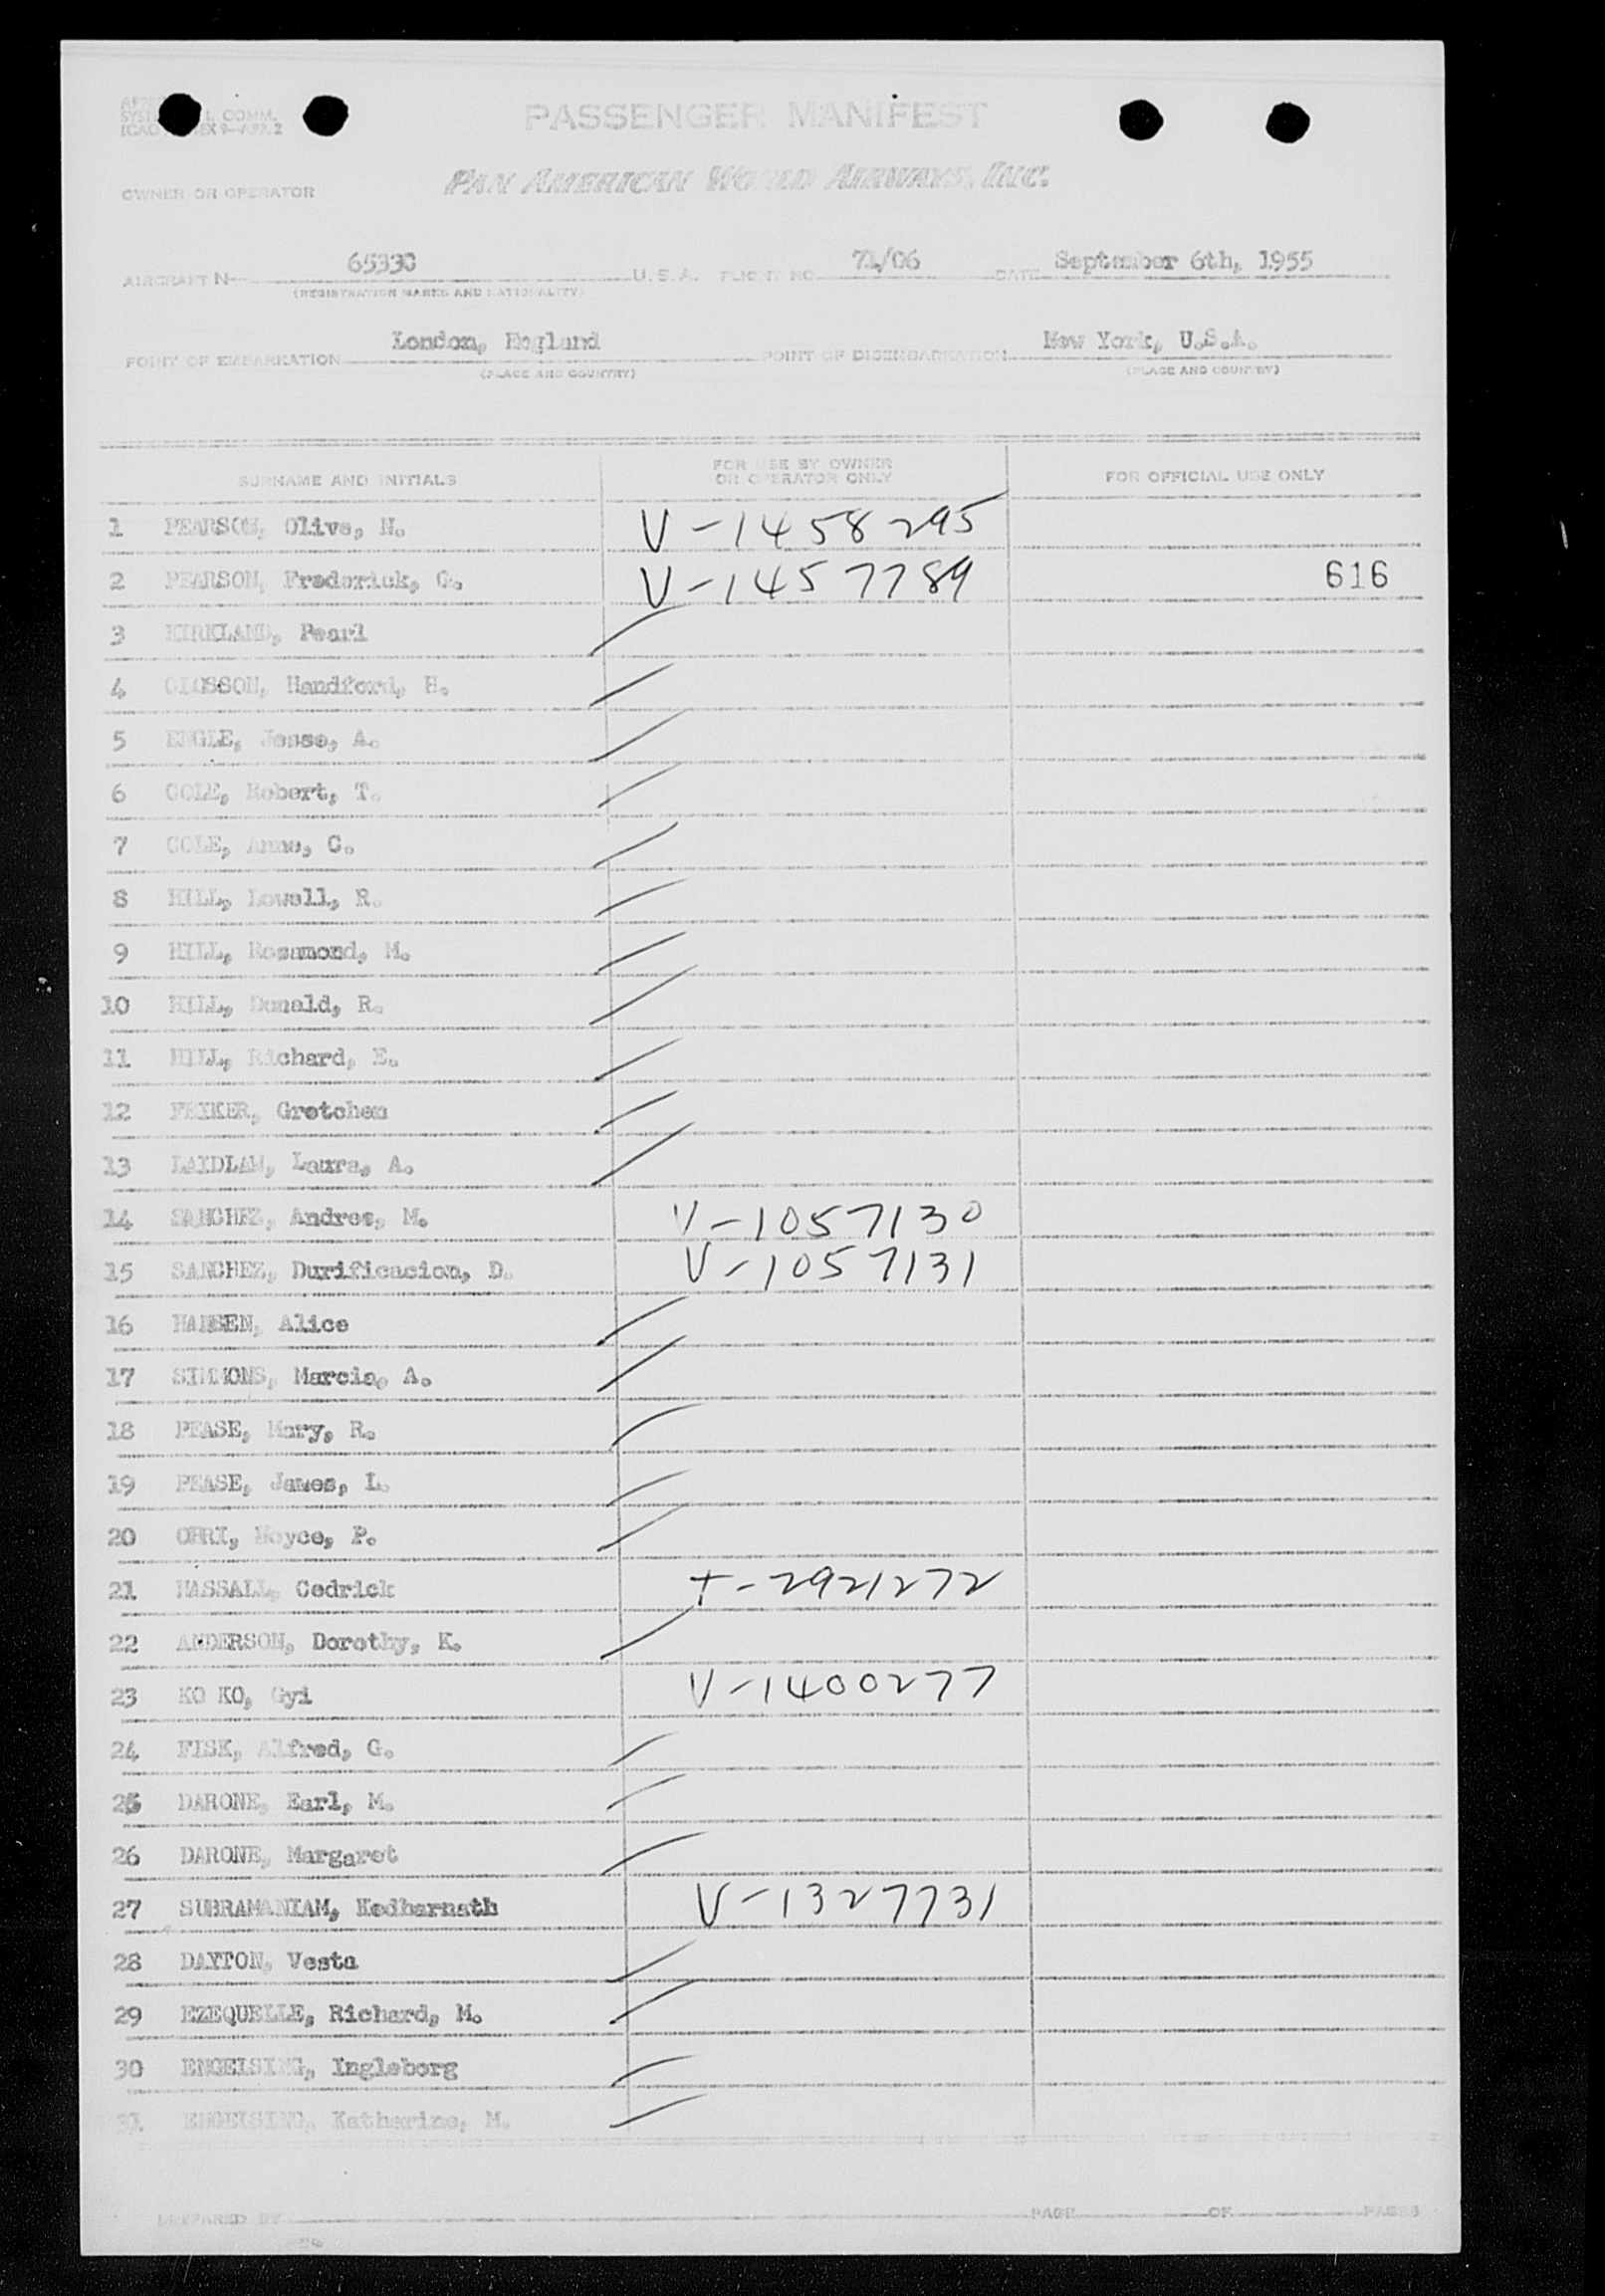 PASSENGER MANIFEST
COMM.
OWNER OR OPERATOR
PAN AMERICAN WORLD AIRWAYS, INC.
AIRCRAFT N- 65330 U.S.A. FLIGHT NO. 71/06 DATE September 6th, 1955
(REGISTRATION MARKS AND NATIONALITY)
POINT OF EMBARKATION London, England POINT OF DISEMBARKATION New York, U.S.A.
(PLACE AND COUNTRY) (PLACE AND COUNTRY)
SURNAME AND INITIALS FOR USE BY OWNER OR OPERATOR ONLY FOR OFFICIAL USE ONLY
1 PEARSON, Olive, N. V-1458295
2 PEARSON, Frederick, G. V-1457789 616
3 KIRKLAND, Pearl
4 Handford, H.
5 ENGLE, Jesse, A.
6 COLE, Robert, T.
7 COLE, Anne, C.
8 HILL, Lowell, R.
9 HILL, Rosamond, M.
10 HILL, Donald, R.
11 HILL, Richard, E.
12 Gretchen
13 LAIDLAW, Laura, A.
14 SANCHEZ, Andres, M. V-1057130
15 SANCHEZ, Durificacion, D. V-1057131
16 HANSEN, Alice
17 SIMMONS, Marcia, A.
18 PEASE, Mary, R.
19 PEASE, James, L.
20 OHRI, P.
21 HASSALL, Cedrick T-2921272
22 ANDERSON, Dorothy, K.
23 KO KO, Gyi V-1400277
24 FISK, Alfred, G.
25 DARONE, Earl, M.
26 DARONE, Margaret
27 SUBRAMANIAM, Kedharnath V-1327731
28 DAYTON, Vesta
29 EZEQUELLE, Richard, M.
30 ENGELSING, Ingleborg
31 ENGELSING, Katharine, M.
PREPARED BY PAGE OF PAGES